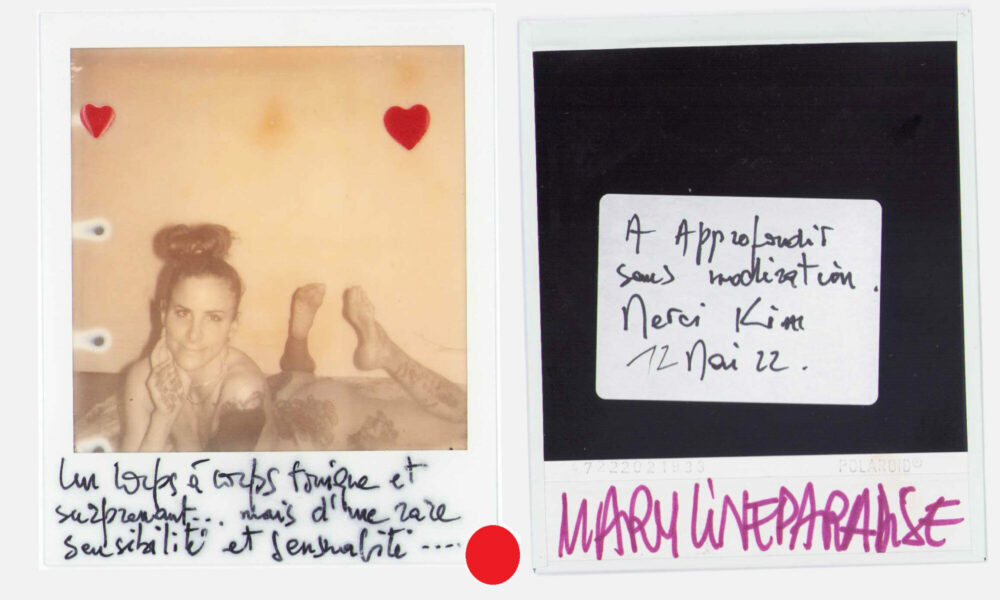 Un corps à corps tonique et
surprenant... mais d'une rare
sensibilité et sensualité ----
A Approfondir
sans modération.
Merci Kim
12 Mai 22.
47222021933
POLAROID®
MARYLINEPARADISE